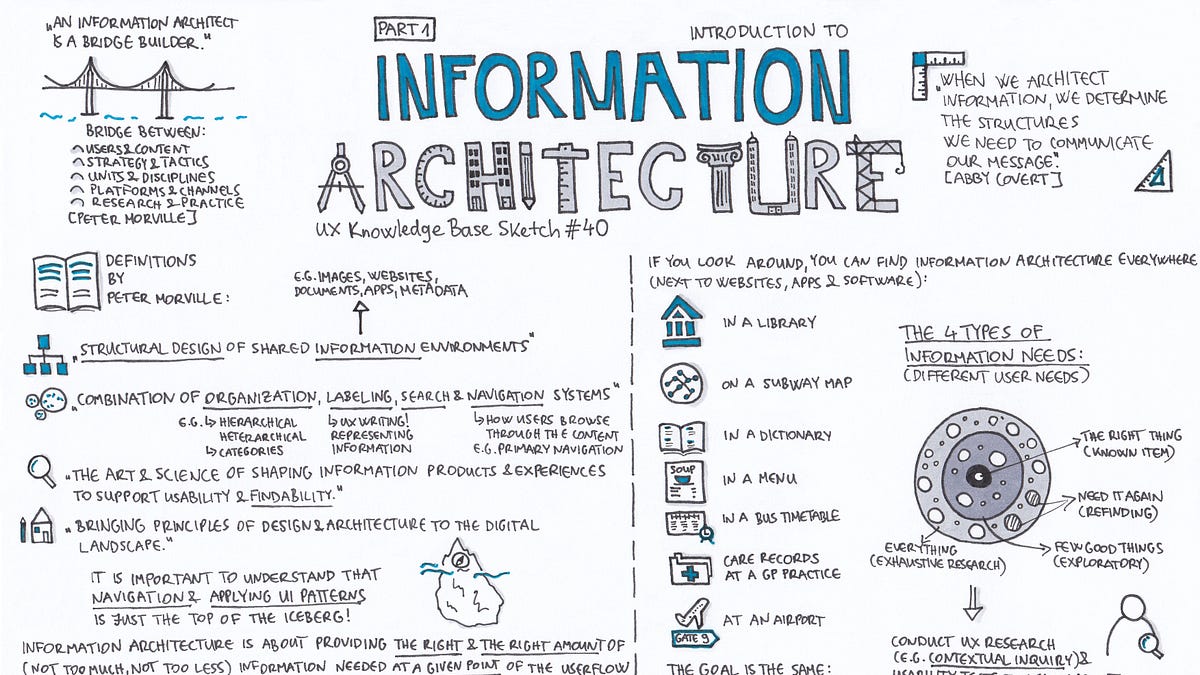 „AN INFORMATION ARCHITECT
IS A BRIDGE BUILDER."
BRIDGE BETWEEN:
USERS & CONTENT
STRATEGY & TACTICS
UNITS & DISCIPLINES
PLATFORMS & CHANNELS
RESEARCH & PRACTICE
[PETER MORVILLE]
PART 1
INTRODUCTION TO
INFORMATION
ARCHITECTURE
UX Knowledge Base Sketch #40
„WHEN WE ARCHITECT
INFORMATION, WE DETERMINE
THE STRUCTURES
WE NEED TO COMMUNICATE
OUR MESSAGE."
[ABBY COVERT]
DEFINITIONS
BY
PETER MORVILLE:
E.G. IMAGES, WEBSITES,
DOCUMENTS, APPS, METADATA
„STRUCTURAL DESIGN OF SHARED INFORMATION ENVIRONMENTS"
„COMBINATION OF ORGANIZATION, LABELING, SEARCH & NAVIGATION SYSTEMS"
E.G. ↳ HIERARCHICAL
HETERARCHICAL
↳ CATEGORIES
↳ UX WRITING!
REPRESENTING
INFORMATION
↳ HOW USERS BROWSE
THROUGH THE CONTENT
E.G. PRIMARY NAVIGATION
„THE ART & SCIENCE OF SHAPING INFORMATION PRODUCTS & EXPERIENCES
TO SUPPORT USABILITY & FINDABILITY."
„BRINGING PRINCIPLES OF DESIGN & ARCHITECTURE TO THE DIGITAL
LANDSCAPE."
IT IS IMPORTANT TO UNDERSTAND THAT
NAVIGATION & APPLYING UI PATTERNS
IS JUST THE TOP OF THE ICEBERG!
INFORMATION ARCHITECTURE IS ABOUT PROVIDING THE RIGHT & THE RIGHT AMOUNT OF
(NOT TOO MUCH, NOT TOO LESS) INFORMATION NEEDED AT A GIVEN POINT OF THE USERFLOW
IF YOU LOOK AROUND, YOU CAN FIND INFORMATION ARCHITECTURE EVERYWHERE
(NEXT TO WEBSITES, APPS & SOFTWARE):
IN A LIBRARY
ON A SUBWAY MAP
IN A DICTIONARY
SOUP
IN A MENU
IN A BUS TIMETABLE
CARE RECORDS
AT A GP PRACTICE
AT AN AIRPORT
GATE 9
THE GOAL IS THE SAME:
THE 4 TYPES OF
INFORMATION NEEDS:
(DIFFERENT USER NEEDS)
THE RIGHT THING
(KNOWN ITEM)
NEED IT AGAIN
(REFINDING)
EVERYTHING
(EXHAUSTIVE RESEARCH)
FEW GOOD THINGS
(EXPLORATORY)
CONDUCT UX RESEARCH
(E.G. CONTEXTUAL INQUIRY) &